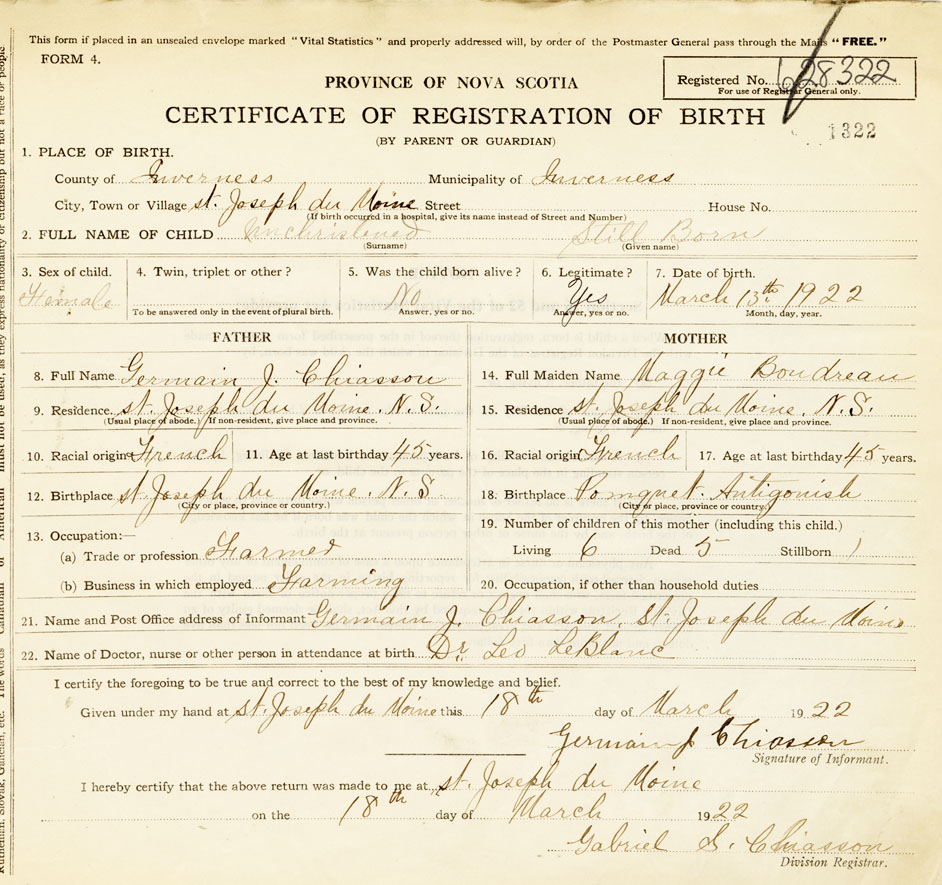 This form if placed in an unsealed envelope marked "Vital Statistics" and properly addressed will, by order of the Postmaster General pass through the Mails "FREE."
FORM 4.
Registered No. 628322
For use of Registrar General only.
PROVINCE OF NOVA SCOTIA
CERTIFICATE OF REGISTRATION OF BIRTH
1322
(BY PARENT OR GUARDIAN)
1. PLACE OF BIRTH.
County of Inverness Municipality of Inverness
City, Town or Village St. Joseph du Moine Street House No.
(If birth occurred in a hospital, give its name instead of Street and Number)
2. FULL NAME OF CHILD Unchristened Still Born
(Surname) (Given name)
3. Sex of child. 4. Twin, triplet or other? 5. Was the child born alive? 6. Legitimate? 7. Date of birth.
Female No Yes March 13th 1922
To be answered only in the event of plural birth. Answer, yes or no. Answer, yes or no. Month, day, year.
FATHER MOTHER
8. Full Name Germain J. Chiasson 14. Full Maiden Name Maggie Boudreau
9. Residence. St. Joseph du Moine. N.S. 15. Residence St. Joseph du Moine. N.S.
(Usual place of abode.) If non-resident, give place and province. (Usual place of abode.) If non-resident, give place and province.
10. Racial origin French 11. Age at last birthday 45 years. 16. Racial origin French 17. Age at last birthday 45 years.
12. Birthplace St. Joseph du Moine. N.S 18. Birthplace Pomquet. Antigonish
(City or place, province or country.) (City or place, province or country.)
13. Occupation:— 19. Number of children of this mother (including this child.)
(a) Trade or profession Farmer Living 6 Dead 5 Stillborn 1
(b) Business in which employed Farming 20. Occupation, if other than household duties
21. Name and Post Office address of Informant Germain J. Chiasson, St. Joseph du Moine
22. Name of Doctor, nurse or other person in attendance at birth Dr. Leo LeBlanc
I certify the foregoing to be true and correct to the best of my knowledge and belief.
Given under my hand at St. Joseph du Moine this 18th day of March 1922
Germain J Chiasson
Signature of Informant.
I hereby certify that the above return was made to me at St. Joseph du Moine
on the 18th day of March 1922
Gabriel S. Chiasson
Division Registrar.